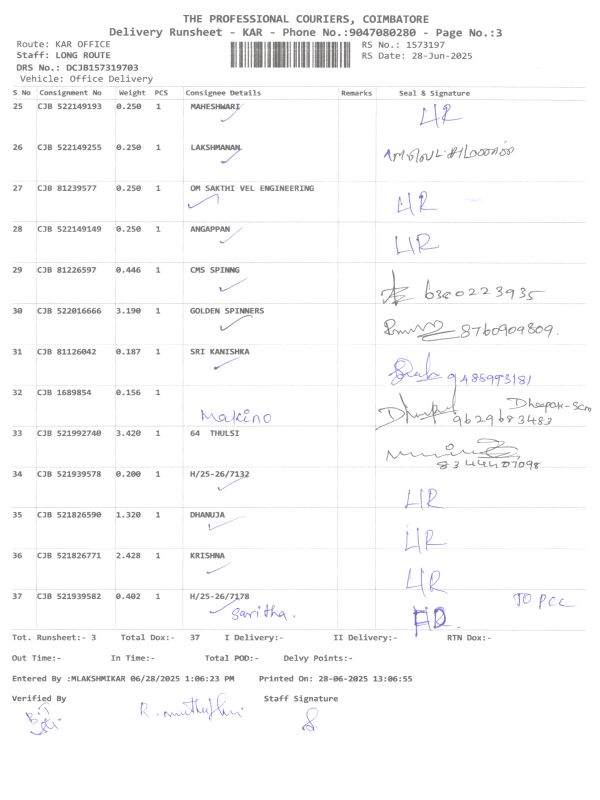 THE PROFESSIONAL COURIERS, COIMBATORE
Delivery Runsheet - KAR - Phone No.:9047080280 - Page No.:3
Route: KAR OFFICE RS No.: 1573197
Staff: LONG ROUTE RS Date: 28-Jun-2025
DRS No.: DCJB157319703
Vehicle: Office Delivery
S No Consignment No Weight PCS Consignee Details Remarks Seal & Signature
25 CJB 522149193 0.250 1 MAHESHWARI
26 CJB 522149255 0.250 1 LAKSHMANAN
27 CJB 81239577 0.250 1 OM SAKTHI VEL ENGINEERING
28 CJB 522149149 0.250 1 ANGAPPAN
29 CJB 81226597 0.446 1 CMS SPINNG 6360223935
30 CJB 522016666 3.190 1 GOLDEN SPINNERS 8760909809.
31 CJB 81126042 0.187 1 SRI KANISHKA 9488993181
32 CJB 1689854 0.156 1 Makino Dheepak-Scm
9629683483
33 CJB 521992740 3.420 1 64 THULSI
8344407098
34 CJB 521939578 0.200 1 H/25-26/7132
35 CJB 521826590 1.320 1 DHANUJA
36 CJB 521826771 2.428 1 KRISHNA
37 CJB 521939582 0.402 1 H/25-26/7178 TO PCC
Saritha.
Tot. Runsheet:- 3 Total Dox:- 37 I Delivery:- II Delivery:- RTN Dox:-
Out Time:- In Time:- Total POD:- Delvy Points:-
Entered By :MLAKSHMIKAR 06/28/2025 1:06:23 PM Printed On: 28-06-2025 13:06:55
Verified By Staff Signature